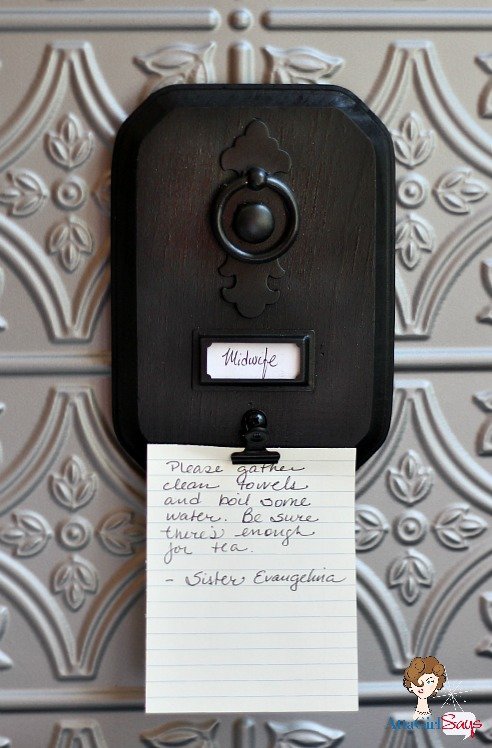 Midwife
Please gather
clean towels
and boil some
water. Be sure
there's enough
for tea.
- Sister Evangelina
AttaGirlSays